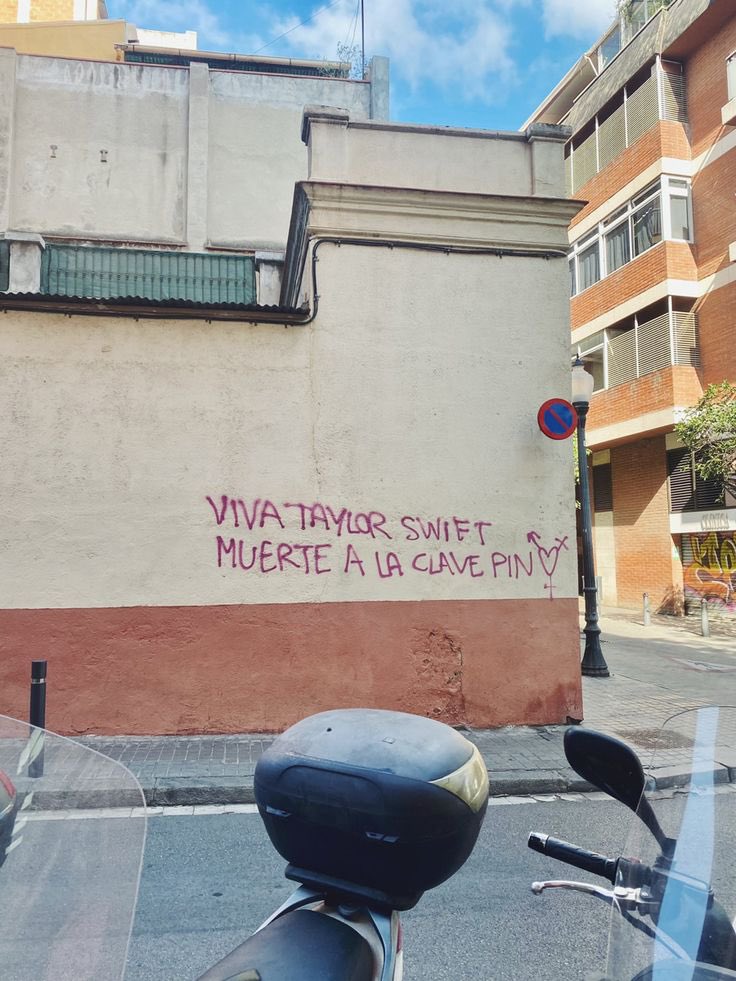 VIVA TAYLOR SWIFT
MUERTE A LA CLAVE PIN